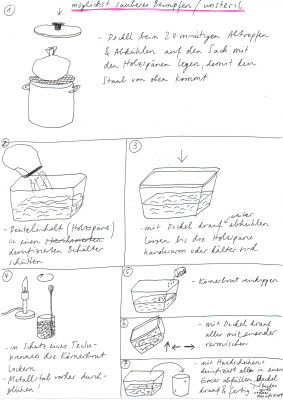 möglichst sauberes Beimpfen / unsteril
1
- Deckel beim 20-minütigen Abtropfen
& Abkühlen auf den Sack mit
den Holzspänen legen, damit kein
Staub von oben kommt
2
- Beutelinhalt (Holzspäne)
in einen sterilisierten
desinfizierten Behälter
schütten
3
- mit Deckel drauf weiter abkühlen
lassen bis die Holzspäne
handwarm oder kälter sind
4
- im Schutz eines Teclu-
brenners die Körnerbrut
lockern
- Metallstab vorher durch-
glühen!
5
- Körnerbrut reinkippen
6
- mit Deckel
drauf
alles mit einander
vermischen
7
- mit Handschuhen
desinfiziert alles in einen
Eimer abfüllen, Deckel
drauf & fertig